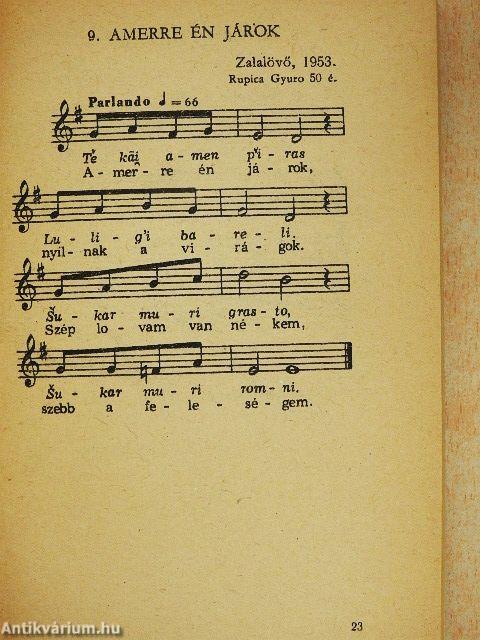 9. AMERRE ÉN JÁROK
Zalalövő, 1953.
Rupica Gyuro 50 é.
Parlando = 66
Te kāi a - men p'i - ras
A - mer - re én já - rok,
Lu - li - g'i ba - re - li.
nyíl - nak a vi - rá - gok.
Šu - kar mu - ri gras - to,
Szép lo - vam van né - kem,
Šu - kar mu - ri rom - ni.
szebb a fe - le - sé - gem.
23
Antikvárium.hu